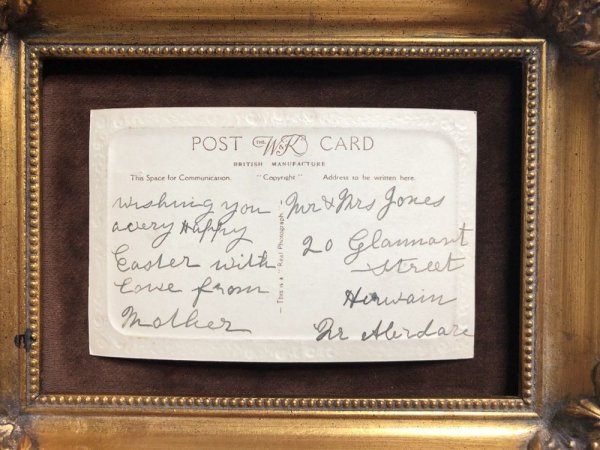 POST THE W&K CARD
BRITISH MANUFACTURE
This Space for Communication. "Copyright" Address to be written here.
wishing you
a very Happy
Easter with
Love from
Mother
This is a Real Photograph
Mr & Mrs Jones
20 Glannant
Street
Hirwain
Nr Aberdare